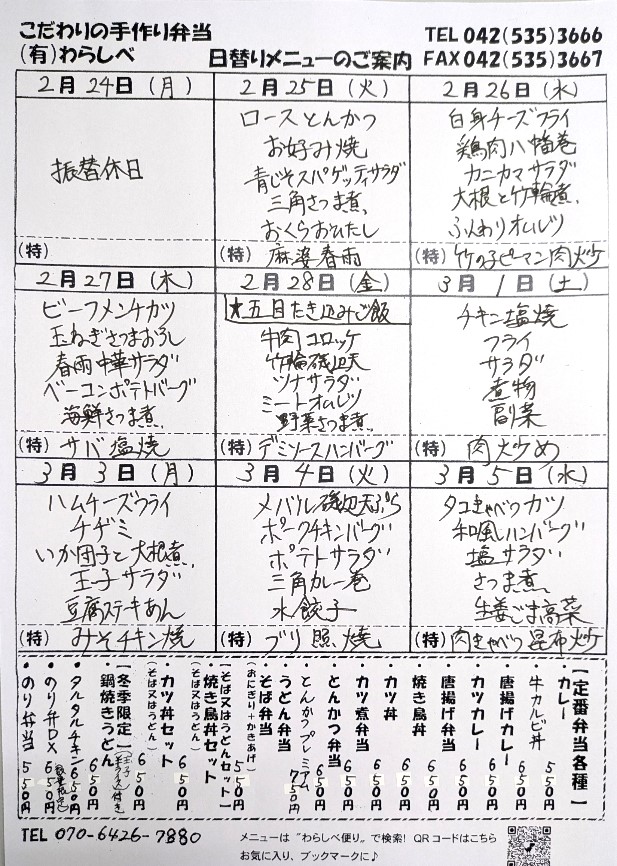 こだわりの手作り弁当
(有)わらしべ
日替りメニューのご案内
TEL 042(535)3666
FAX 042(535)3667
2月24日(月)
振替休日
(特)
2月25日(火)
ロースとんかつ
お好み焼
青じそスパゲッティサラダ
三角さつま煮
おくらおひたし
(特) 麻婆春雨
2月26日(水)
白身チーズフライ
鶏肉八幡巻
カニカマサラダ
大根と竹輪煮
ふんわりオムレツ
(特) 竹の子ピーマン肉炒
2月27日(木)
ビーフメンチカツ
玉ねぎさつまおろし
春雨中華サラダ
ベーコンポテトバーグ
海鮮さつま煮
(特) サバ塩焼
2月28日(金)
★五目たき込みご飯
牛肉コロッケ
竹輪磯辺天
ツナサラダ
ミートオムレツ
野菜さつま煮
(特) デミソースハンバーグ
3月1日(土)
チキン塩焼
フライ
サラダ
煮物
副菜
(特) 肉炒め
3月3日(月)
ハムチーズフライ
チヂミ
いか団子と大根煮
玉子サラダ
豆腐ステーキあん
(特) みそチキン焼
3月4日(火)
メバル磯辺天ぷら
ポークチキンバーグ
ポテトサラダ
三角カレー巻
水餃子
(特) ブリ照焼
3月5日(水)
タコきゃべつカツ
和風ハンバーグ
塩サラダ
さつま煮
生姜ごま高菜
(特) 肉きゃべつ昆布炒
【定番弁当各種】
・カレー 550円
・牛カルビ丼 650円
・唐揚げカレー 650円
・カツカレー 650円
・唐揚げ弁当 650円
・焼き鳥丼 650円
・カツ丼 650円
・カツ煮弁当 650円
・とんかつ弁当 650円
・とんかつプレミアム 750円
・うどん弁当
・そば弁当
(おにぎり+かきあげ) 550円
【そば又はうどんセット】
・焼き鳥丼セット
(そば又はうどん) 650円
・カツ丼セット
(そば又はうどん) 650円
【冬季限定】
・鍋焼きうどん 650円
・タルタルチキン 650円
・のり弁DX 650円
・のり弁当 550円
TEL 070-6426-7880
メニューは“わらしべ便り”で検索! QRコードはこちら
お気に入り、ブックマークに♪